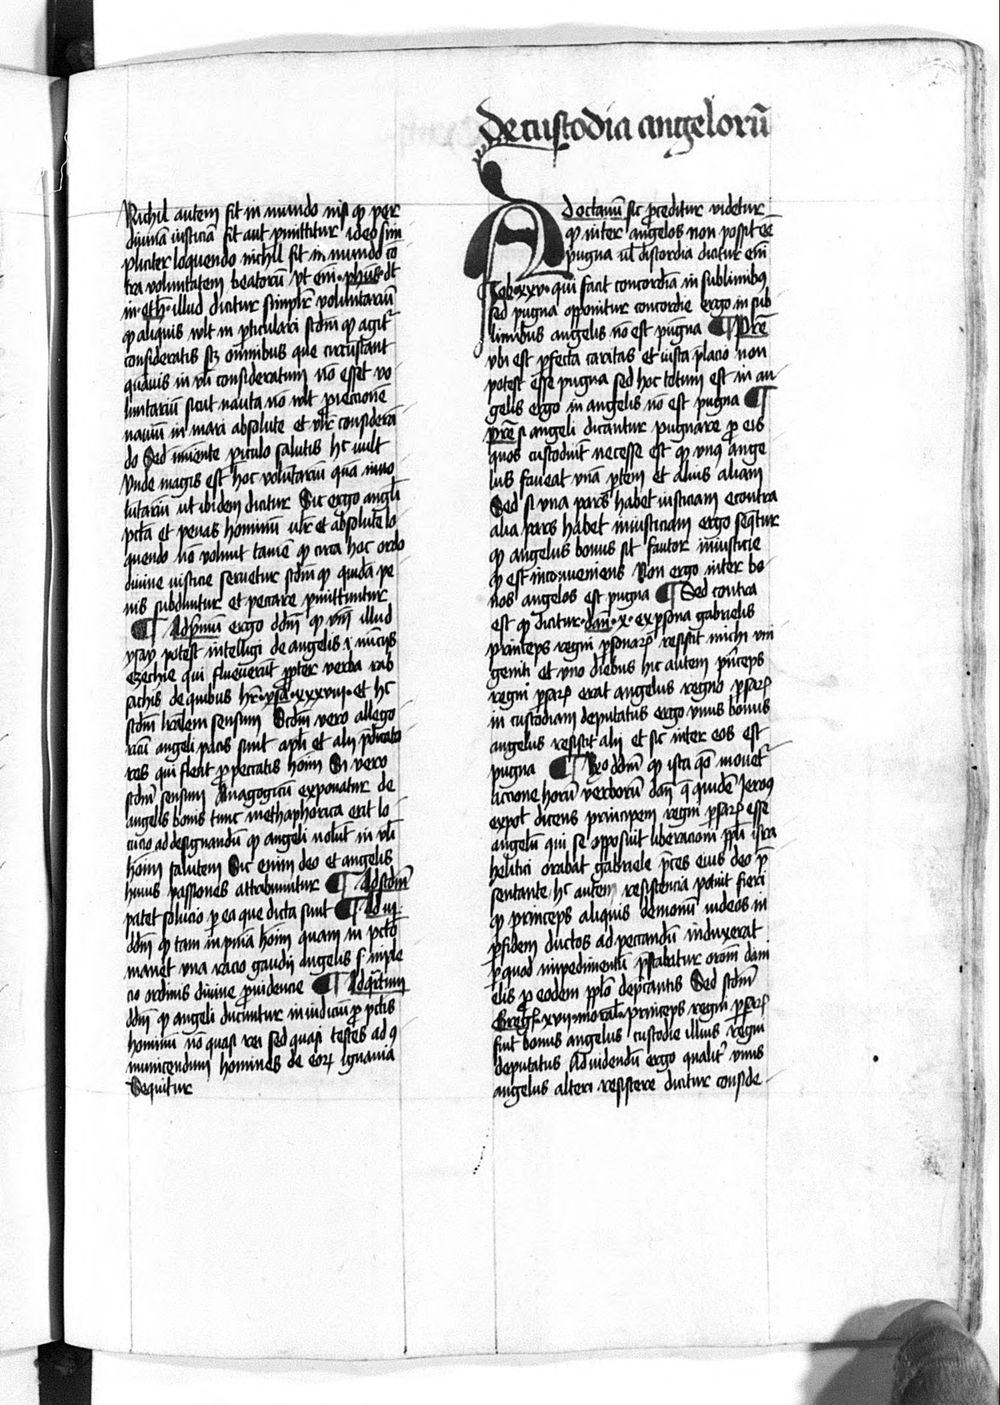 de custodia angelorū
Nichil autem fit in mundo nisi qꝫ per
diuinā iusticiā fit aut ꝑmittitur ideo sim
pliciter loquendo nichil fit in mundo cō
tra voluntatem beatorū vt eni · phūs · dt
in · eth · illud dicitur simplr̄ voluntariū
qꝫ aliquis vult in ꝑticulari scdm̄ qꝫ agit᷑
consideratis scꝫ omnibus que circūstant
quāuis in vlī consideratum nō esset vo
luntariū sicut nauta nō vult ꝓiectionē
nauiū in mari absolute et vlr̄ considerā
do Sed iminente ꝑiculo salutis hc wult
Vnde magis est hoc voluntariū quā inuo
lūtariū ut ibidem dicitur Sic ergo angli
pctā et penas hominū vlr̄ et absolute lo
quendo nō volunt tamē qꝫ circa hoc ordo
diuine iusticie seruetur scdm̄ qꝫ quidā pe
nis subduntur et peccare ꝑmittuntur
¶ Ad pmū ergo ddm̄ qꝫ vm̄ illud
ysay potest intelligi de angelis i nūcijs
ezechie qui fleuerūt ꝓpter verba rab
sachis de quibus hr̄ · ysa · xxxvii · et hc
scdm̄ lrālem sensum Scdm vero allego
ricū angeli pacis sunt apli et alij p̄dicato
res qui flent ꝓ peccatis hoīm Si vero
scdm̄ sensum Anagogicū exponatur de
angelis bonis tunc methaphorica erit lo
cucio ad designandū qꝫ angeli volūt in vlī
hoīm salutem Sic enim deo et angelis
huius passiones attribuuntur ¶ Ad scdm̄
patet solucio ꝑ ea que dicta sunt ¶ Ad iij
ddm̄ qꝫ tam in pnīa hoīm quam in pctō
manet vna racio gaudij angelis s imple
cio ordinis diuine ꝓuidencie ¶ Ad qrtum
ddm̄ qꝫ angeli ducuntur in iudiciū ꝓ pctis
hominū nō quasi rei sed quasi testes ad 9
uincendum homines de eoꝝ ignauia
Sequitur
Ad octauū sic ꝓceditur videtur
qꝫ inter angelos non possit eē
pugna ul̄ discordia dicitur eni
Iob · xxv · qui facit concordiā in sublimibꝫ
sed pugna opponitur concordie ergo in sub
limibus angelis nō est pugna ¶ Prē
vbi est ꝑfecta caritas et iusta p̄lacio non
potest esse pugna sed hoc totum est in an
gelis ergo in angelis nō est pugna ¶
Prē si angeli dicantur pugnare ꝓ eis
quos custodiūt necesse est qꝫ vnꝰ ange
lus faueat vnā ꝑtem et alius aliam
Sed si vna pars habet iusticiam econtra
alia pars habet iniusticiam ergo seqtur
qꝫ angelus bonus sit fautor iniusticie
qꝫ est inconueniens Non ergo inter bo
nos angelos est pugna ¶ Sed contra
est qꝫ dicitur · dan · x · ex ꝑsona gabrielis
princeps regni ꝑsarꝝ resistit michi vin
genti et vno diebus hic autem pnceps
regni ꝑsarꝝ erat angelus regno ꝑsarꝝ
in custodiam deputatus ergo vnus bonus
angelus resistit alij et sic inter eos est
pugna ¶ Rn̄o ddm̄ qꝫ ista qo mouet᷑
accione horū verborū dan q̄ quidē Jeroꝰ
expot dicens principem regni ꝑsarꝝ esse
angelū qui se opposuit liberacioni ppli isra
helitici orabat gabriele p̄ces eius deo p̄
sentante hc autem resistencia potuit fieri
qꝫ princeps aliquis demonū iudeos in
ꝑsidem ductos ad peccandū induxerat
ꝑ quod impedimentū p̄stabatur oroni dani
elis ꝓ eodem pplo dep̄cantis Sed scdm̄
Greg · xvii · moral · princeps regni ꝑsarꝝ
fuit bonus angelus custodie illius regni
deputatus Ad videndū ergo qualit᷑ vnus
angelus alteri resistere dicitur conside